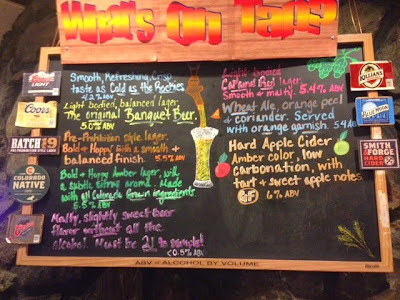 What's On Tap?
Smooth, Refreshing, Crisp
taste as Cold as the Rockies
4.2% ABV
Light bodied, balanced lager.
The original Banquet Beer.
5.0% ABV
Pre-Prohibition style lager.
Bold + Hoppy with a smooth +
balanced finish. 5.5% ABV
Bold + Hoppy Amber lager, with
a subtle citrus aroma. Made
with all Colorado Grown ingredients
5.5% ABV
Malty, slightly sweet beer
flavor without all the
alcohol. Must be 21 to sample!
<0.5% ABV
lager.
Smooth + malty. 5.4% ABV
Wheat Ale, orange peel
+ coriander. Served
with orange garnish. 5.4 ABV
Hard Apple Cider
Amber color, low
Carbonation, with
tart + sweet apple notes
GF 6% ABV
LIGHT
Coors
BATCH 19
COLORADO
NATIVE
KILLIAN'S
BLUE MOON
SMITH &
FORGE
HARD CIDER
ABV = ALCOHOL BY VOLUME